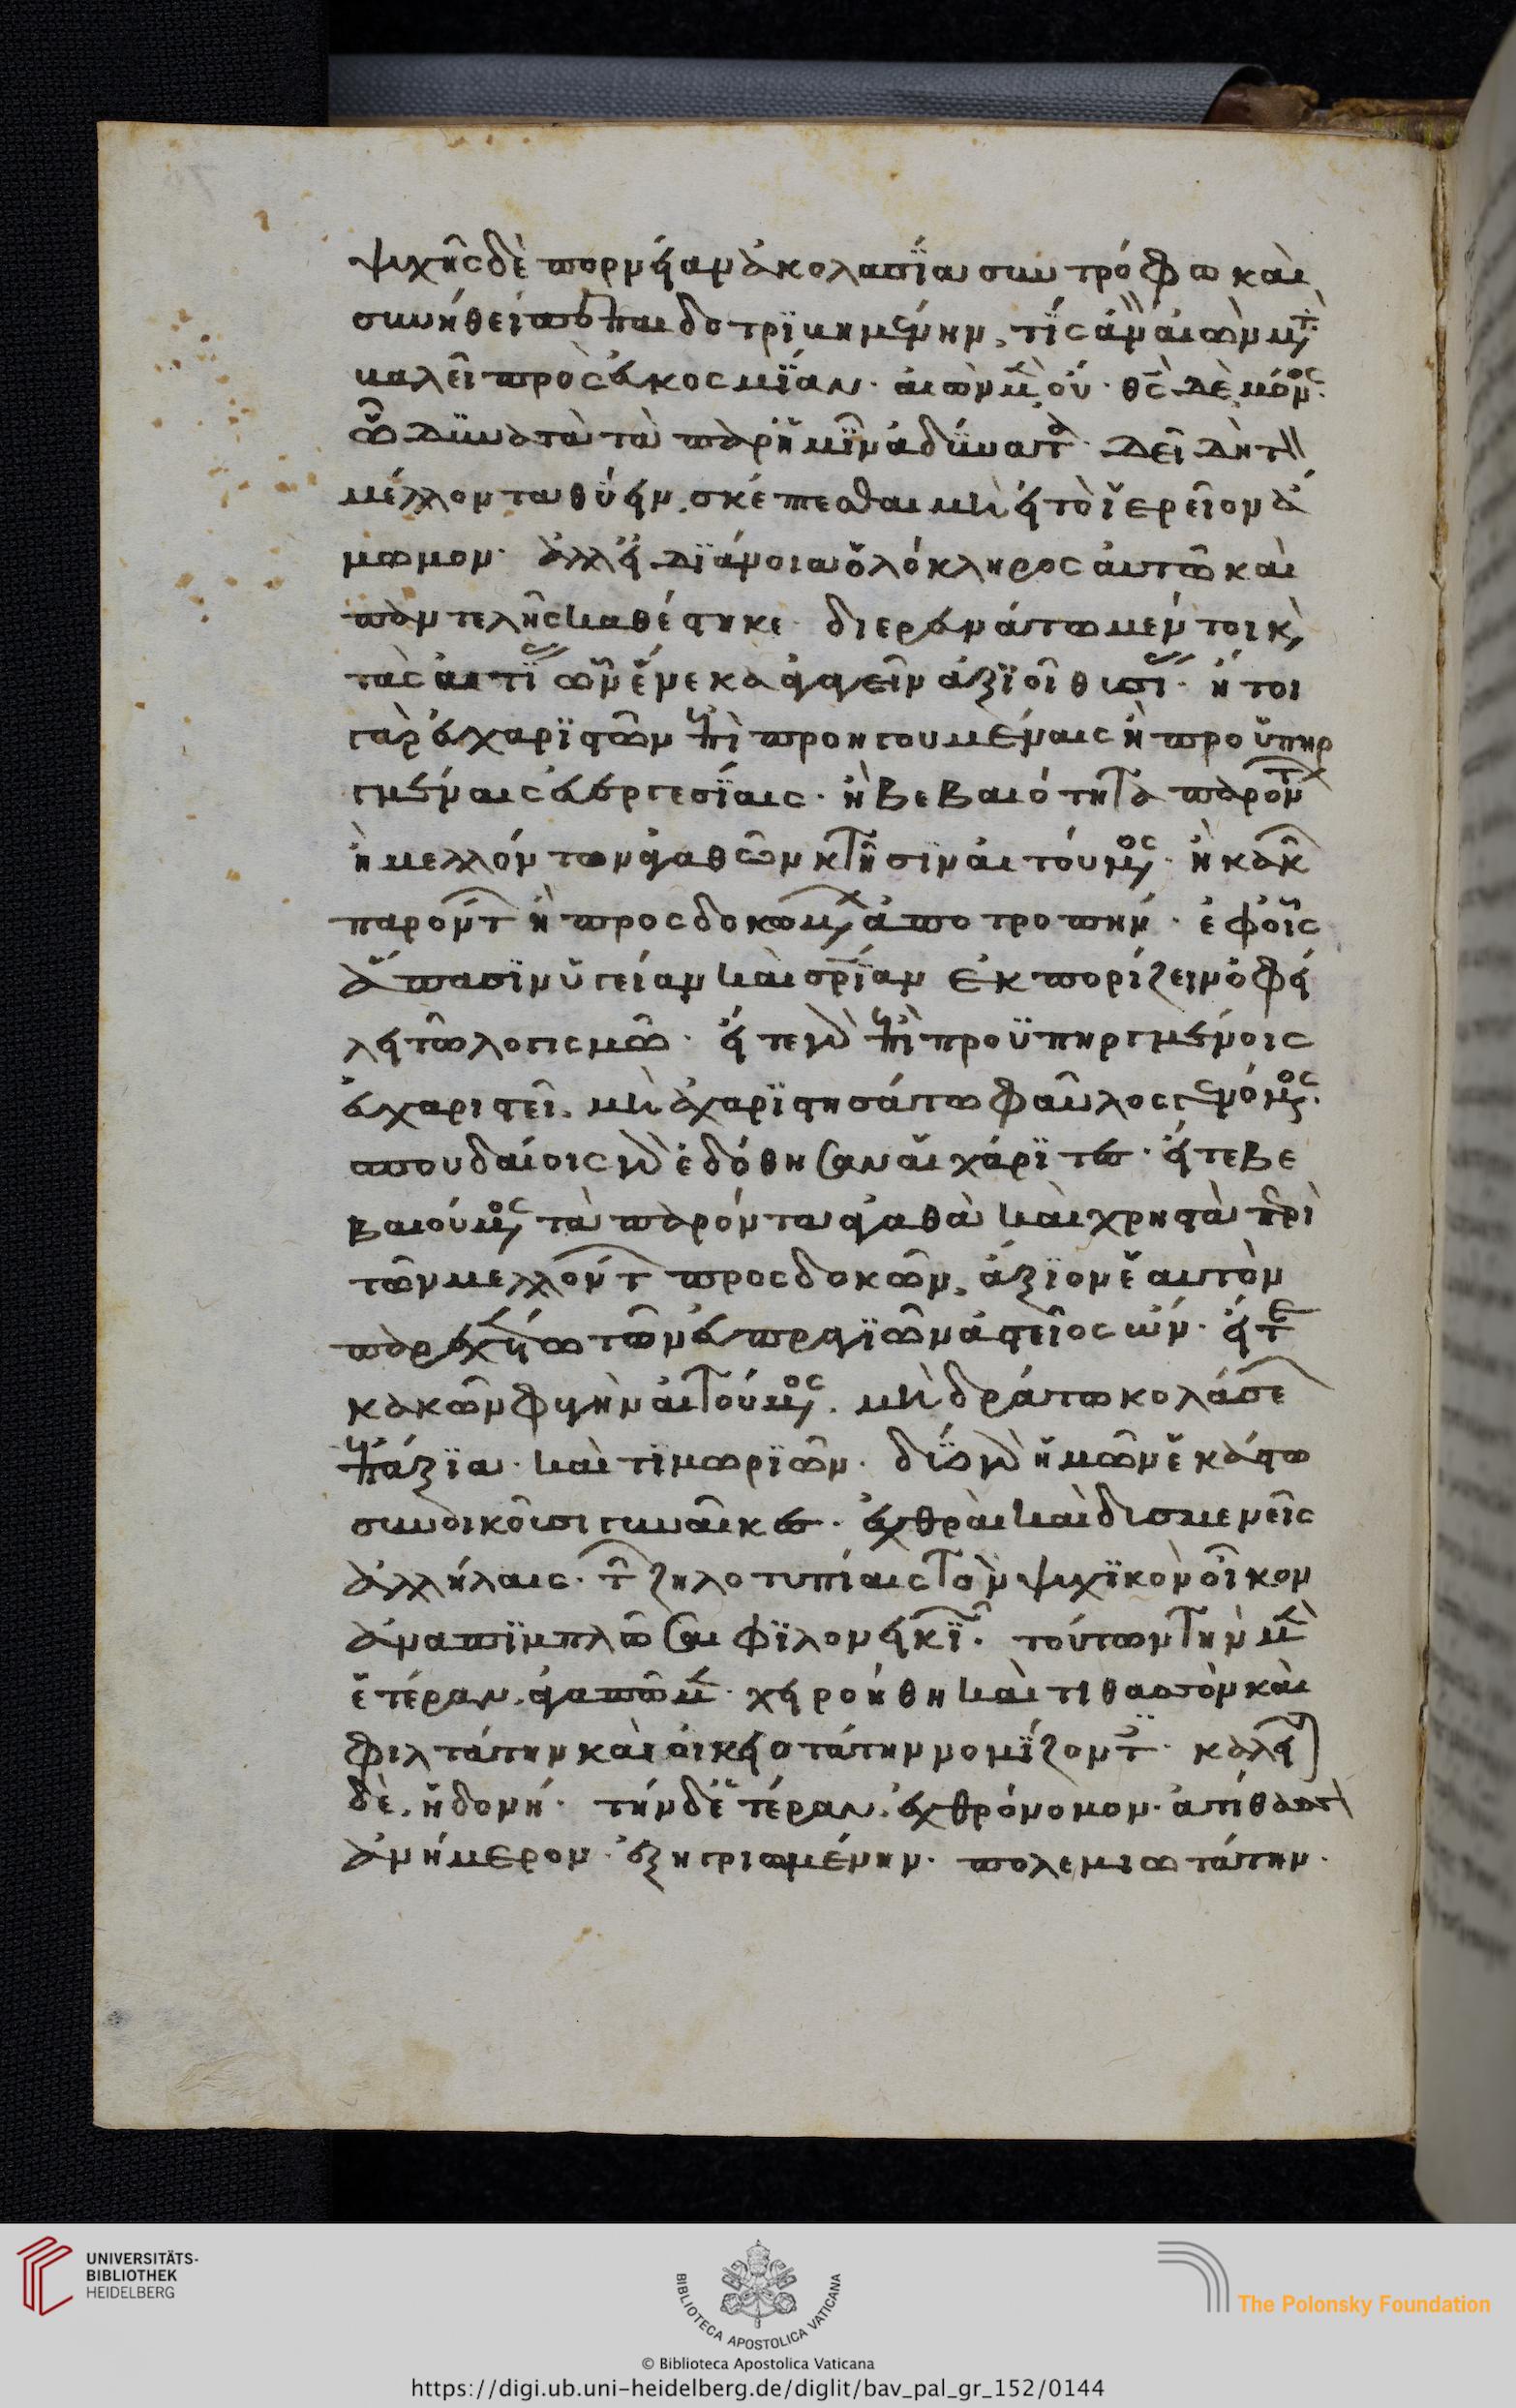 ψυχῆς δὲ πορνείαν ἀκολασία συντρόφω καὶ
συνηθεία παιδοτριβημένην, τίς ἂν αἰὼν μετ
βαλεῖ πρὸς εὐκοσμίαν· αἰὼν μὲν οὐ· θς δὲ μόνος·
ὧ δυνατὰ τὰ παρ' ἡμῖν ἀδύνατα· δεῖ δὴ τὸν
μέλλοντα θύειν, σκέπτεσθαι μὴ εἰ τὸ ἱερεῖον ἄ
μωμον· ἀλλ' εἰ διάνοια ὁλόκληρος αὐτῶ καὶ
παντελὴς καθέστηκε· διερευνάτω μέντοι κ
τὰς αἰτίας ὧν ἕνεκα ἀξιοῖ θυσι· ἤτοι
γὰρ εὐχαριστῶν ἐπὶ προηγουμέναις ἢ προϋπηρ
γμέναις εὐεργεσίαις· ἢ βεβαιότητα παρόντων
ἢ μελλόντων ἀγαθῶν κτῆσιν αἰτούμενος· ἢ κακῶν
παρόντων ἢ προσδοκωμένων ἀποτροπήν· ἐφ' οἷς
ἅπασιν ὑγείαν καὶ σρίαν ἐκπορίζειν ὀφεί
λει τῶ λογισμῶ· εἴτε γὰρ ἐπὶ προϋπηργμένοις
εὐχαριστεῖ, μὴ ἀχαριστησάτω φαῦλος γενόμενος·
σπουδαίοις γὰρ ἐδόθησαν αἱ χάριτες· εἴτε βε
βαιούμενος τὰ παρόντα ἀγαθὰ καὶ χρηστὰ περὶ
τῶν μελλόντων προσδοκῶν, ἄξιον ἑαυτὸν
παρεχέτω τῶν εὐπραγιῶν ἀστεῖος ὤν· εἴτε
κακῶν φυγὴν αἰτούμενος, μὴ δράτω κολάσεως
ἐπάξια καὶ τιμωριῶν· δύο γὰρ ἡμῶν ἑκάστω
συνοικοῦσι γυναῖκες· ἐχθραὶ καὶ δυσμενεῖς
ἀλλήλαις· τῶν ζηλοτυπίαις τὸν ψυχικὸν οἶκον
ἀναπιμπλῶσαι φιλονεικιῶν· τούτων τὴν μὲν
ἑτέραν, ἀγαπῶμεν· χειροήθη καὶ τιθασὸν καὶ
φιλτάτην καὶ οἰκειοτάτην νομίζοντες· καλεῖται
δὲ, ἡδονή· τὴν δ' ἑτέραν, ἐχθρόνομον· ἀτίθασον
ἀνήμερον· ἐξηγριωμένην· πολεμιωτάτην·
UNIVERSITÄTS-
BIBLIOTHEK
HEIDELBERG
BIBLIOTECA APOSTOLICA VATICANA
The Polonsky Foundation
© Biblioteca Apostolica Vaticana
https://digi.ub.uni-heidelberg.de/diglit/bav_pal_gr_152/0144